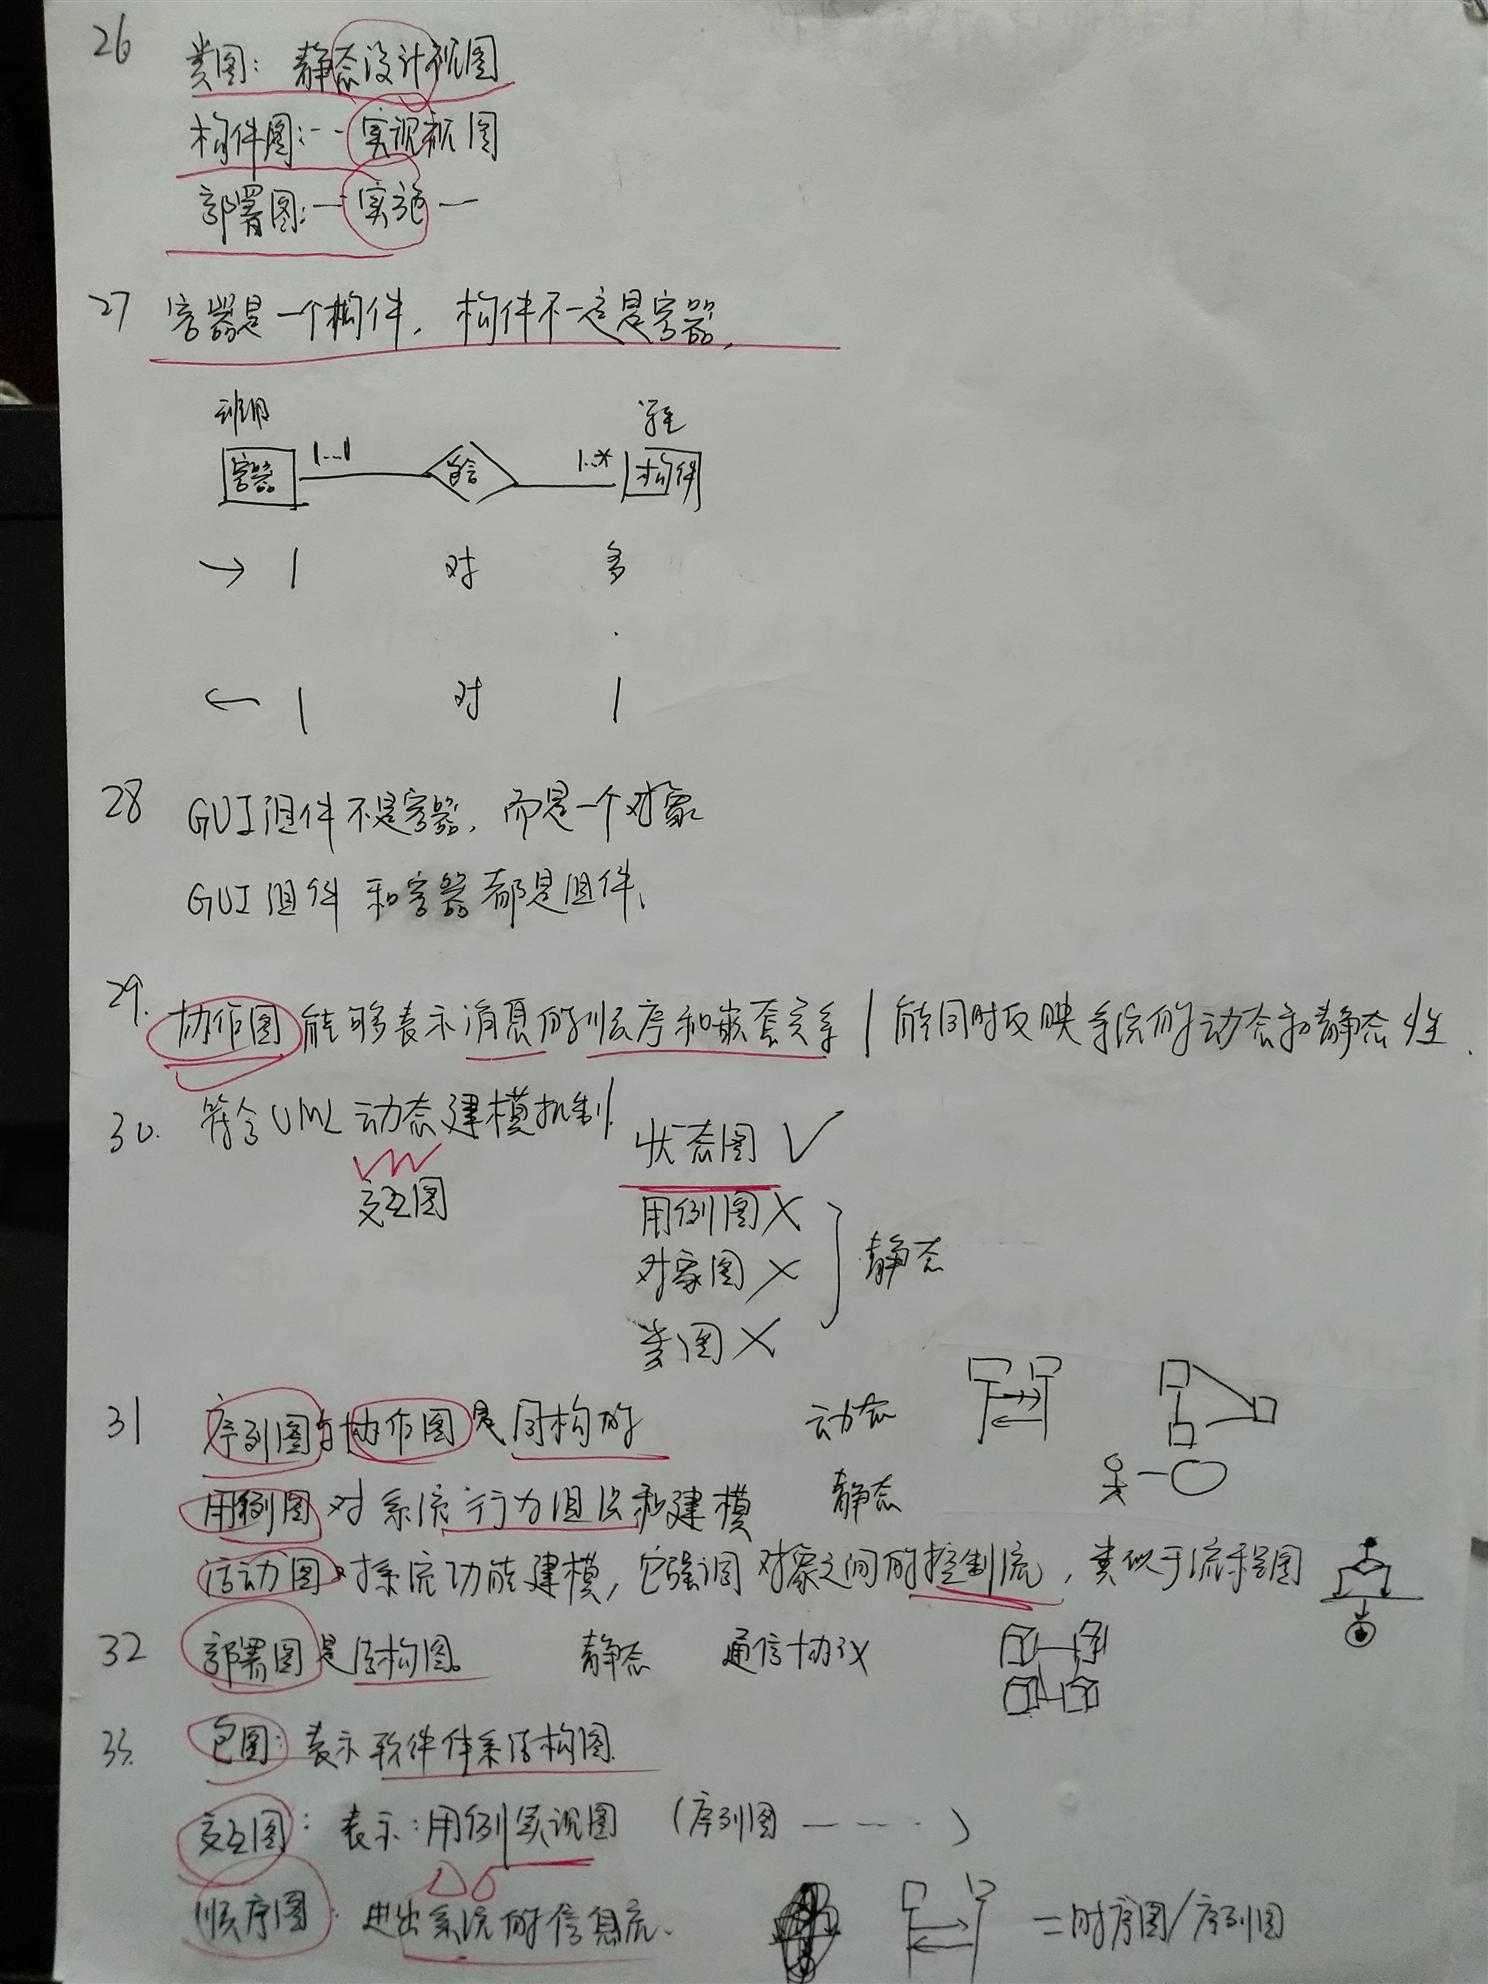 26 类图：静态设计视图
构件图：-- 实现视图
部署图：一实施一
27 容器是一个构件，构件不一定是容器，
容器 1...1 包含 1..* 构件
→ 1 对 多
← 1 对 1
28 GUI组件不是容器，而是一个对象
GUI组件和容器都是组件、
29. 协作图能够表示消息的顺序和嵌套关系 / 能同时反映系统的动态和静态性.
30. 符合UML动态建模机制 状态图 ✓
交互图
用例图 ×
对象图 × 静态
类图 ×
31 序列图与协作图是同构的 动态
用例图对系统行为组织和建模 静态
活动图对系统功能建模，它强调对象之间的控制流，类似于流程图
32 部署图是结构图。 静态 通信协议
33. 包图：表示软件体系结构图.
交互图：表示：用例实现图 （序列图 -----）
顺序图：进出系统的信息流. =时序图/序列图